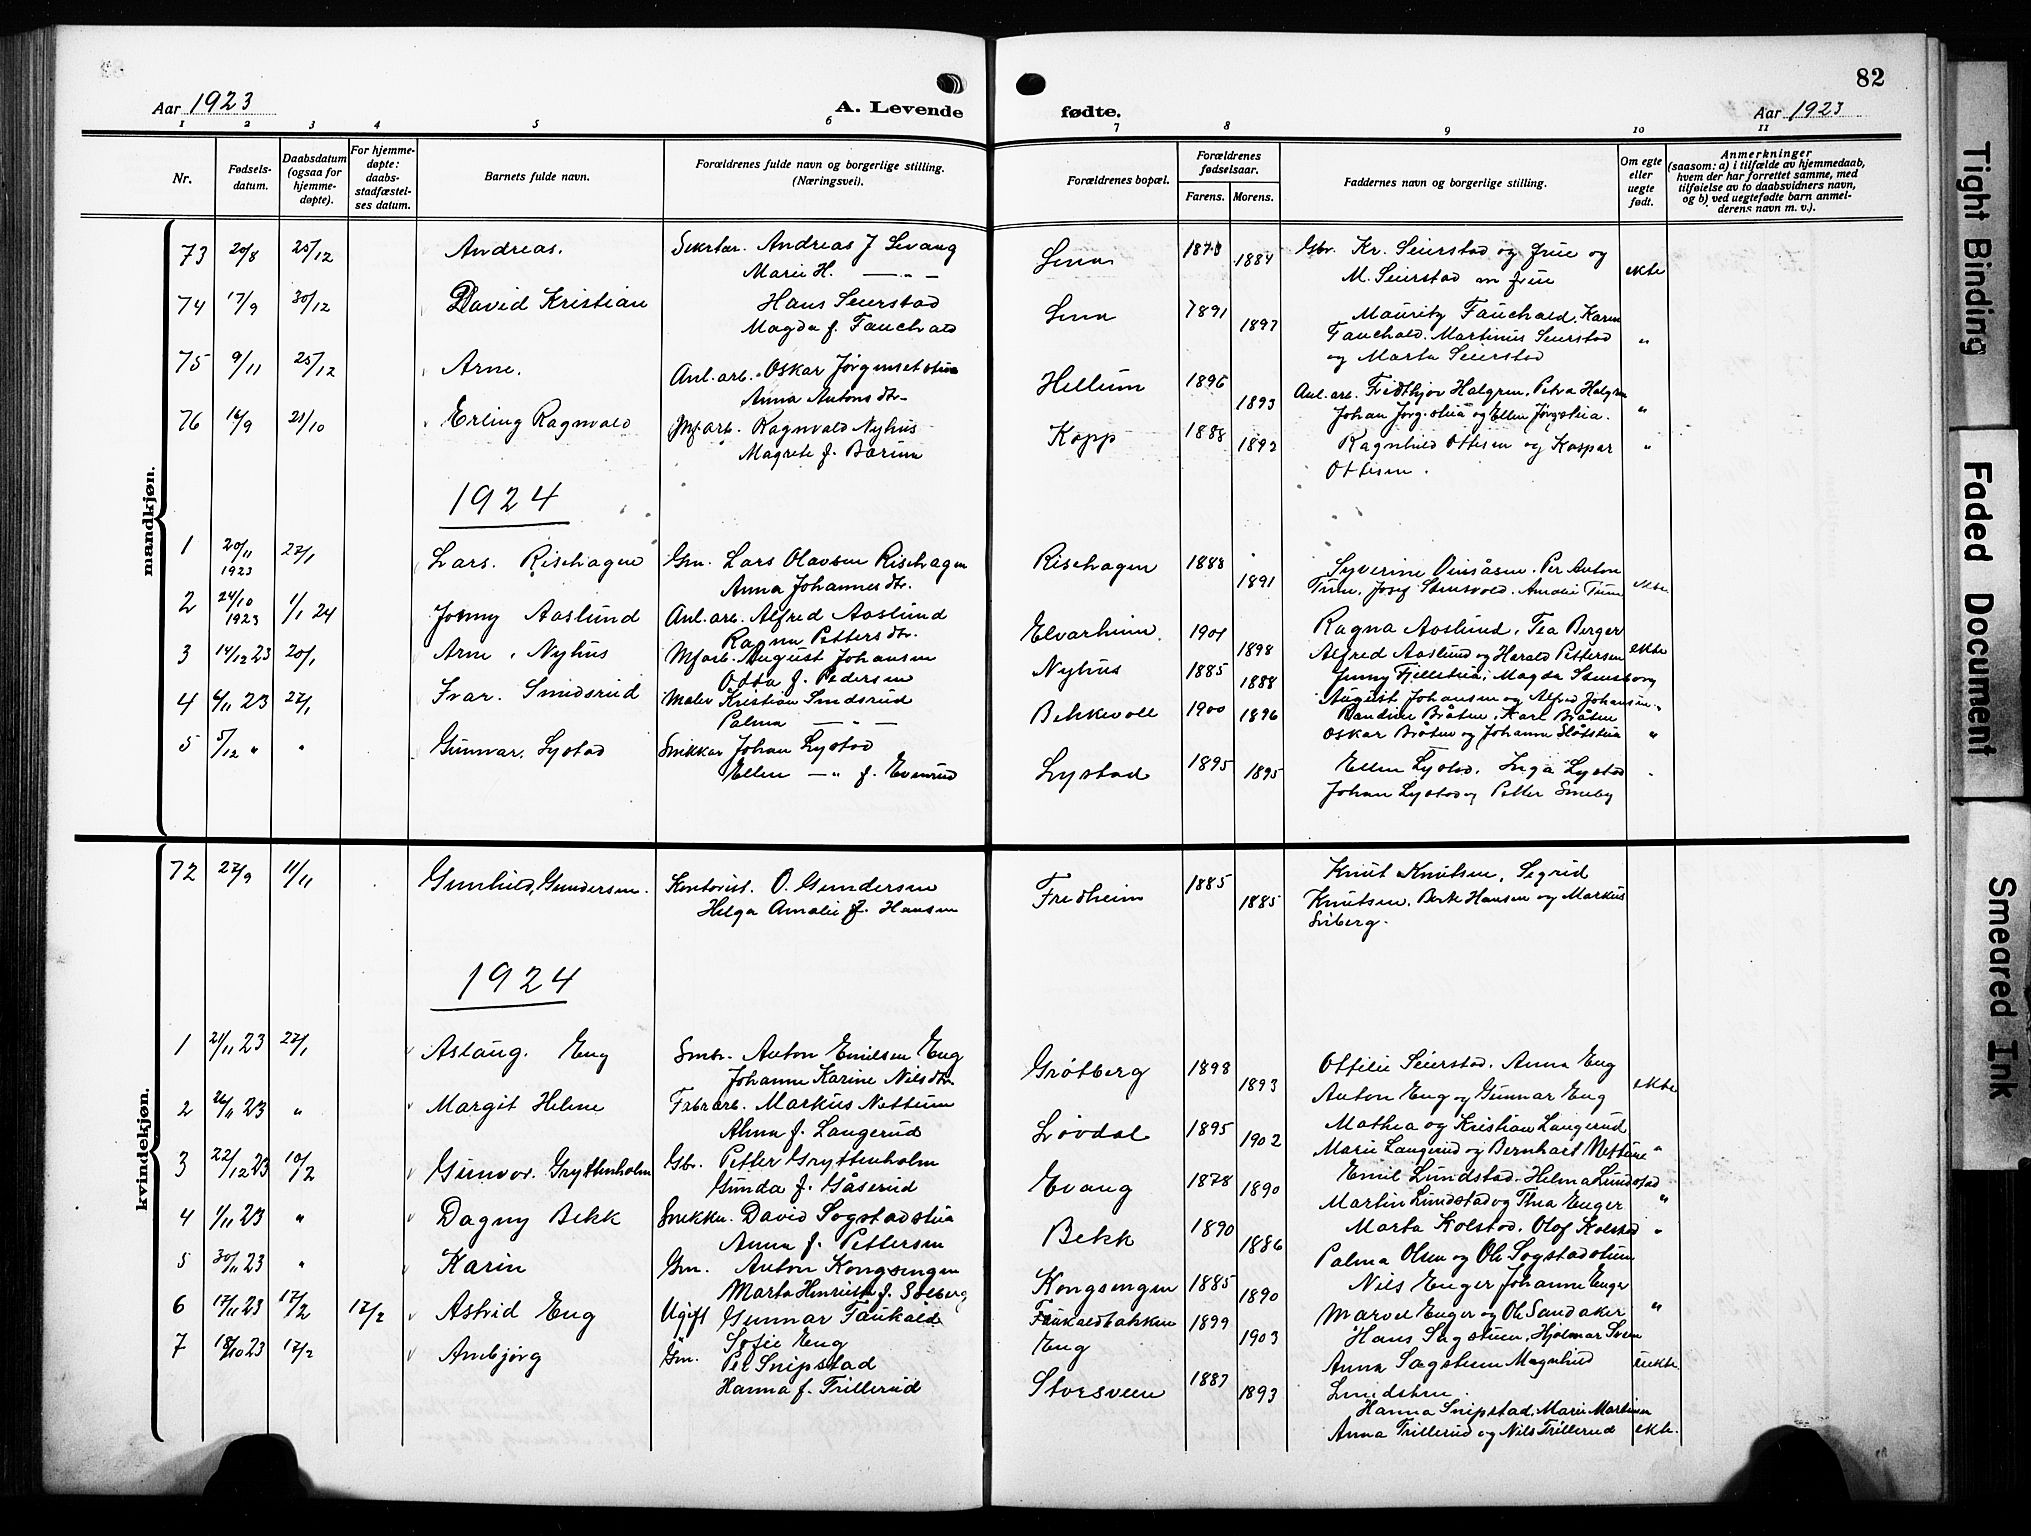 82
Aar 1923
A. Levende
fødte.
Aar 1923
1 2 3 4 5 6 7 8 9 10 11
Nr.
Fødsels-
datum.
Daabsdatum
(ogsaa for
hjemme-
døpte).
For hjemme-
døpte:
daabs-
stadfæstel-
ses datum.
Barnets fulde navn.
Forældrenes fulde navn og borgerlige stilling.
(Næringsvei).
Forældrenes bopæl.
Forældrenes
fødselsaar.
Farens. Morens.
Faddernes navn og borgerlige stilling.
Om egte
eller
uegte
født.
Anmerkninger
(saasom: a) i tilfælde av hjemmedaab,
hvem der har forrettet samme, med
tilføielse av to daabsvidners navn,
og b) ved uegtefødte barn anmel-
derens navn m. v.).
mandkjøn.
73 20/8 25/12 Andreas. Sekretær. Andreas J Sevang Lena 1884 Gbr. Kr. Seierstad og frue og
Marie H. — " — M. Seierstad m frue ekte
74 17/9 30/12 David Kristian Hans Seierstad Lena 1891 1897 Mauritz Fauchald. Karen
Magda f. Fauchald Fauchald. Martinius Seierstad "
og Marta Seierstad
75 9/11 25/12 Arne. Anl. arb. Oskar Jørgensetstua Hellum 1896 1893 Anl. arb. Fridthjov Halgren, Petra Halgren
Anna Antonsdtr. Johan Jørg.stua og Ellen Jørgstua. "
76 16/9 21/10 Erling Ragnvald Mf arb. Ragnvald Nyhus Kopp 1888 1892 Ragnhild Ottesen og Kaspar "
Magrete f. Børina Ottesen.
1924
1 20/11 1923 27/1 Lars. Rischagen Gm. Lars Olavsen Rischagen Rischagen 1888 1891 Syverine Per Anton
Anna Johannesdtr. Tune, Josef Stensvold. Amalie Tune ekte
2 24/10 1923 1/1 24 Jonny Aaslund Anl. arb. Alfred Aaslund Elvarheim. 1901 1898 Ragna Aaslund, Tea Berger
Ragna Pettersdtr. Alfred Aaslund og Harald Pettersen ekte
3 14/12 23 20/1 Arne. Nyhus Mfarb. August Johansen Nyhus 1885 1888 Jenny Fjellstua, Magda Stensborg
Otta f. Pedersen August Johansen og Alfred Johansen "
4 6/11 23 27/1 Ivar. Smidsrud Maler Kristian Smidsrud Bekkevoll 1900 1896 Randine Bråten, Karl Bråten
Palma — " — Oskar Bråten og Johanne Slåtstua "
5 5/12 " " Gunnar. Lystad Snikkar Johan Lystad Lystad 1895 1895 Ellen Lystad. Inga Lystad "
Ellen — " f. Evenrud Johan Lystad og Petter Smeby
kvindekjøn.
72 27/9 11/11 Gunhild, Gundersen. Kontorist. O. Gundersen Fridheim 1885 1885 Knut Knutsen, Sigrid
Helga Amalie f. Hansen Knutsen. Berte Hansen og Markus
Siiberg.
1924
1 21/11 23 27/1 Aslaug. Eng Smbr. Anton Emilsen Eng Grøtberg 1898 1893 Ottilie Seierstad. Anna Eng
Johanne Karine Nilsdtr. Anton Eng og Gunnar Eng ekte
2 26/11 23 " Margit Helene Fabrarb. Markus Nettum Løvdal 1895 1902 Mathea og Kristian Langerud
Alma f. Langerud Marie Langerud og Bernhart Nettum "
3 22/12 23 10/2 Gunvor. Gryttenholm Gbr. Petter Gryttenholm Evang 1878 1890 Emil Lundstad. Helma Lundstad
Gunda f. Gaserud Martin Lundstad og Thea Enger "
4 1/11 23 " Dagny Bekk Snekker. David Sogstadstua Bekk 1890 1886 Marta Kolstad. Olof Kolstad "
Anna f. Pettersen Palma Olsen og Ole Sogstadstuen
5 30/11 23 " Karin Gm. Anton Kongsengen Kongsengen 1885 1890 Nils Enger Johanne Enger
Marta Henriette f. Solberg Marvel Enger og Ole Sandaker "
6 17/11 23 17/2 17/2 Astrid Eng Ugift Gunnar Faukald Faukaldbakken 1899 1903 Hans Sagstuen, Hjalmar Sveen
Sofie Eng Eng Anna Sagstuen Magnhild uekte
Lundsten.
7 18/10 23 17/2 Ambjørg Gm. Per Snipstad Storsveen 1887 1893
Hanna f. Trillerud Hanna Snipstad, Marie Martinsen
Anna Trillerud og Nils Trillerud ekte.
Tight Binding
Faded Document
Smeared Ink